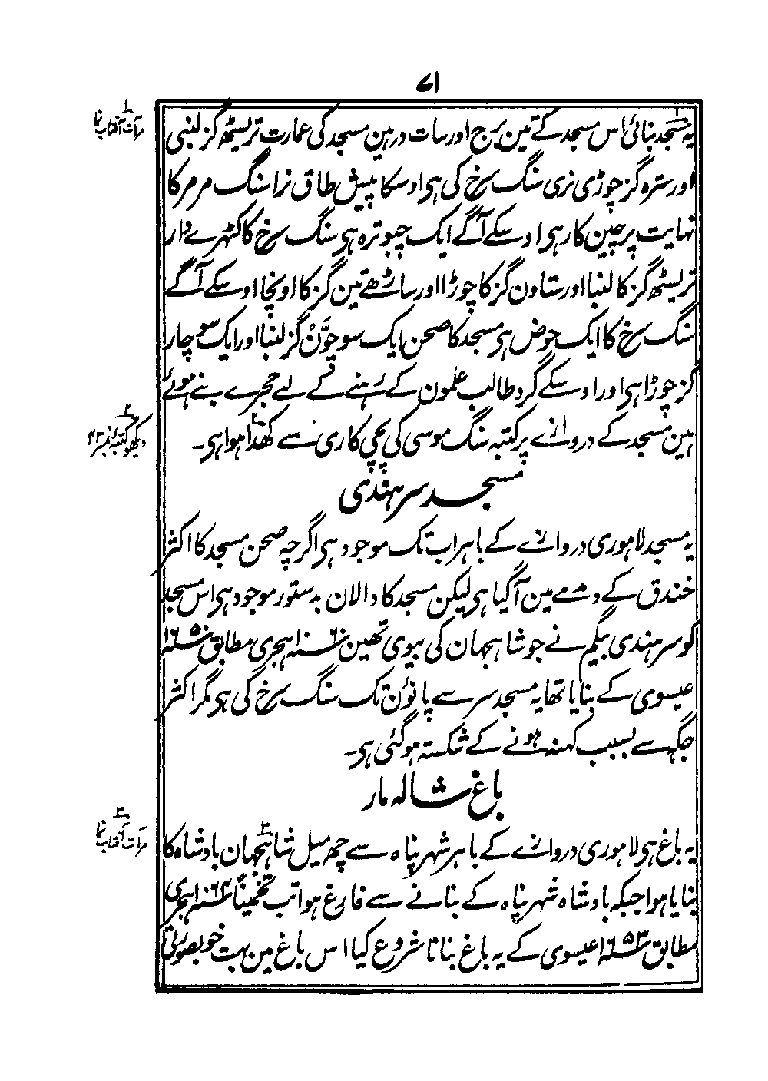 ۷۱
یہ مسجد بنائی اس مسجد کے تین برج اور سات در ہین مسجد کی عمارت تریسٹھ گز لنبی
اور سترہ گز چوڑی نری سنگ سرخ کی ہی اوسکا پیش طاق نرا سنگ مرمر کا
نہایت پرچین کار ہی اوسکے آگے ایک چبوترہ ہی سنگ سرخ کا کٹہرے دار
تریسٹھ گز کا لنبا اور ستاون گز کا چوڑا اور ساڑھے تین گز کا اونچا اوسکے آگے
سنگ سرخ کا ایک حوض ہی مسجد کا صحن ایک سو چوّن گز لنبا اور ایک سو چار
گز چوڑا ہی اور اوسکے گرد طالب علمون کے رہنے کے لیے حجرے بنے ہوئے
ہین مسجد کے دروازے پر کتبہ سنگ موسی کی پچی کاری سے کھدا ہوا ہی۔
مسجد سرہندی
یہ مسجد لاہوری دروازے کے باہر اب تک موجود ہی اگرچہ صحن مسجد کا اکثر
خندق کے دمدمے مین آگیا ہی لیکن مسجد کا دالان بدستور موجود ہی اس مسجد
کو سرہندی بیگم نے جو شاہجہان کی بیوی تھین ۱۰۶۰ ہجری مطابق ۱۶۵۰
عیسوی کے بنایا تھا یہ مسجد سر سے پانؤن تک سنگ سرخ کی ہی مگر اکثر
جگہ سے بسبب کہنہ ہونے کے شکستہ ہوگئی ہی۔
باغ شالہ مار
یہ باغ ہی لاہوری دروازے کے باہر شہر پناہ سے چھ میل شاہجہان بادشاہ کا
بنایا ہوا جبکہ بادشاہ شہر پناہ کے بنانے سے فارغ ہوا تب تخمیناً ۱۰۶۴ ہجری
مطابق ۱۶۵۳ عیسوی کے یہ باغ بنانا شروع کیا اس باغ مین بہت خوبصورتی
۱
مرآت آفتاب نما
۲
دیکھو کتبہ نمبر
۳
مرآت آفتاب نما